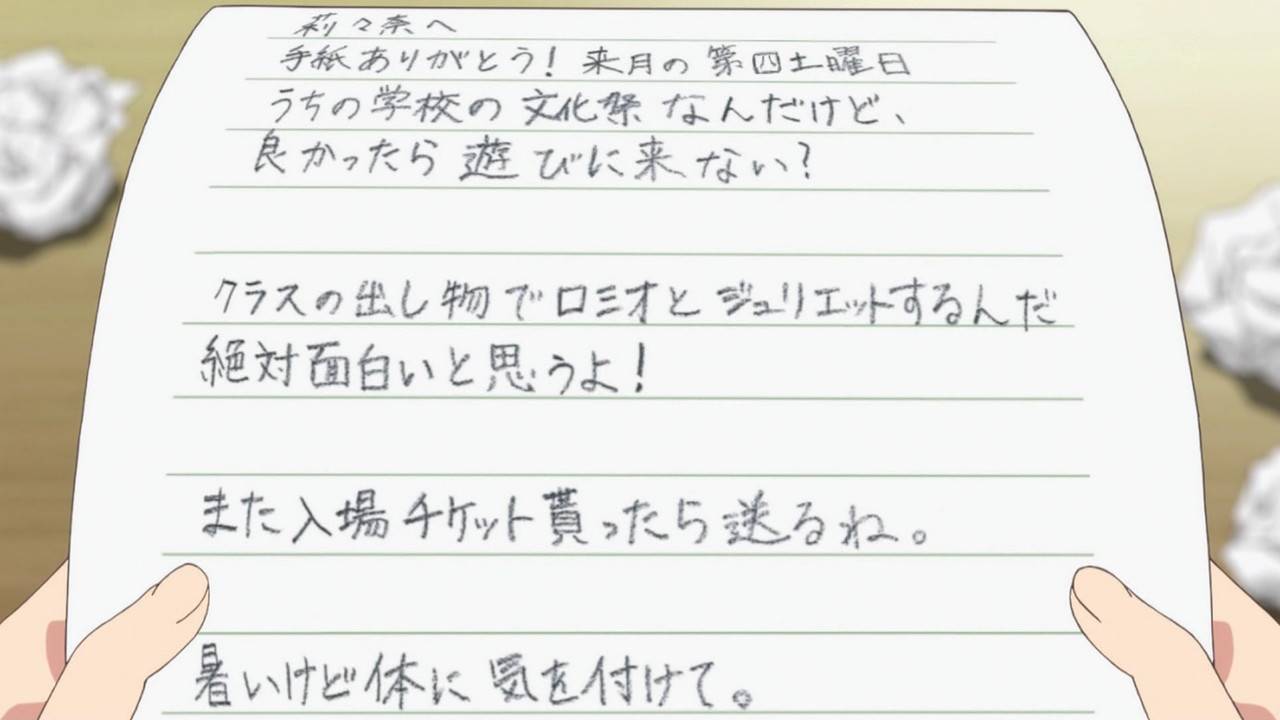 莉々奈へ
手紙ありがとう! 来月の第四土曜日
うちの学校の文化祭なんだけど、
良かったら遊びに来ない?
クラスの出し物でロミオとジュリエットするんだ
絶対面白いと思うよ!
また入場チケット貰ったら送るね。
暑いけど体に気を付けて。